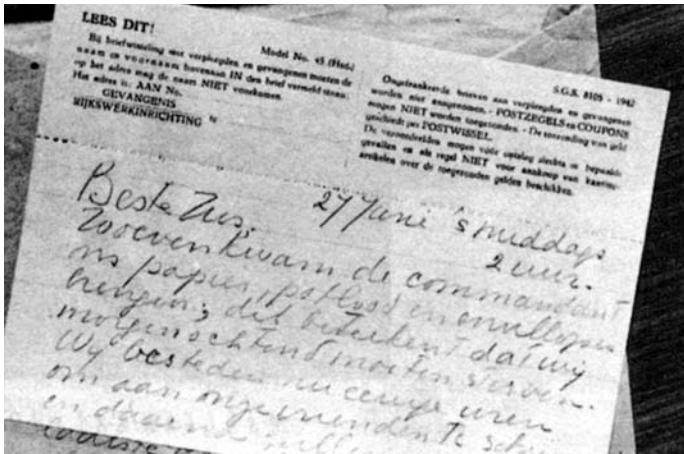 LEES DIT!
Model No. 45 (Hud.)
Bij briefwisseling met verpleegden en gevangenen moeten de
naam en voornaam bovenaan IN den brief vermeld staan;
op het adres mag de naam NIET voorkomen.
Het adres is: AAN No.
GEVANGENIS
RIJKSWERKINRICHTING te
S.G.S. 8105 - 1942
Ongefrankeerde brieven aan verpleegden en gevangenen
worden niet aangenomen. - POSTZEGELS en COUPONS
mogen NIET worden toegezonden. - De toezending van geld
geschiedt per POSTWISSEL.
De veroordeelden mogen vóór ontslag slechts in bepaalde
gevallen en als regel NIET voor aankoop van kantine-
artikelen over de toegezonden gelden beschikken.
Beste Zus, 27 Juni 's middags
2 uur.
Zooeven kwam de commandant
ns papier, potlood en enveloppen
brengen; dit beteekent dat wij
morgenochtend moeten sterven.
Wij besteden nu eenige uren
om aan onze vrienden te
en daarna